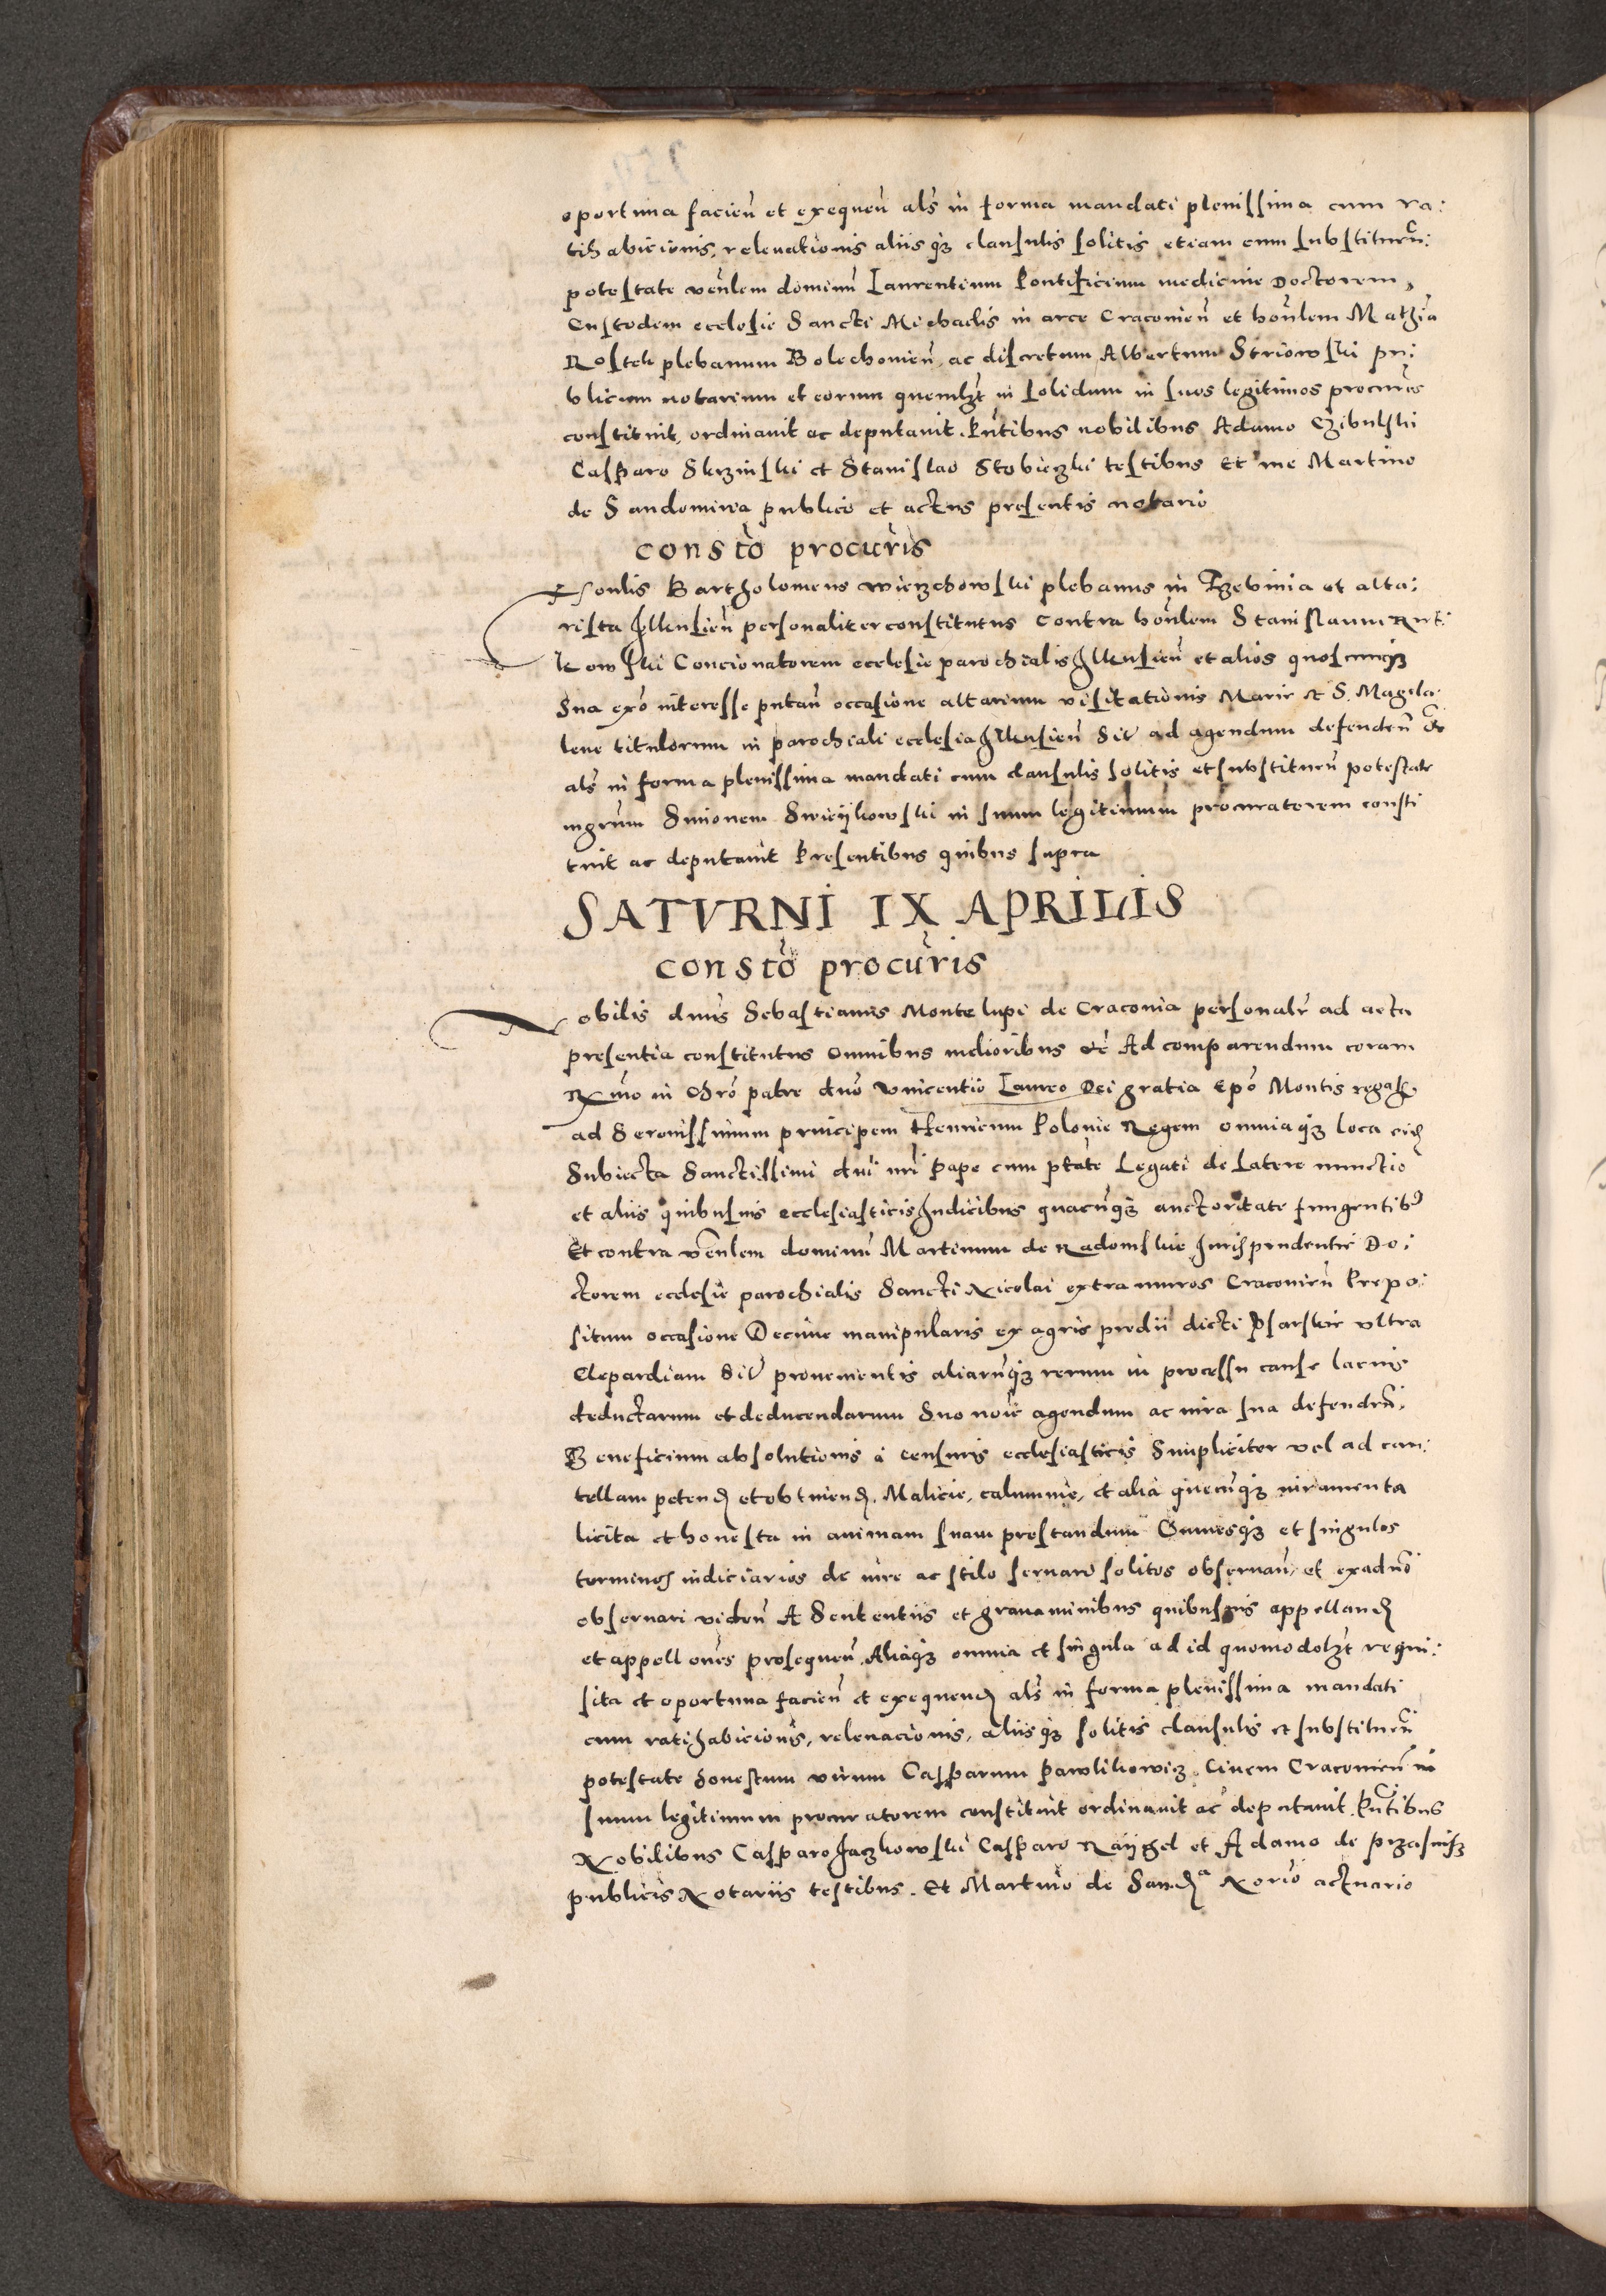 oportuna facien̄ et exequen̄ als̄ in forma mandati plenissima cum ra:
tihabicionis, relevationis aliisq₃ clausulis solitis etiam cum substituen̄:
potestate ven̄lem dominū Laurentium Pontificium medicine Doctorem,
Custodem ecclesie Sancti Michaelis in arce Cracovien̄ et hon̄lem Mathiā
Rostek plebanum Bolechovien̄, ac discretum Albertum Striowski pu:
blicum notarium et eorum quemlȝt in solidum in suos legitimos procur̄es
constituit, ordinavit ac deputavit. Pn̄tibus nobilibus Adamo Czibulski
Casparo Skrzinski et Stanislao Stobieczki testibus Et me Martino
de Sandomiria publico et actus presentis notario
consto procuris
Honlis Bartholomeus Wierzchowski plebanus in Trzebinia et alta:
rista Ilkusien̄ personaliter constitutus Contra hon̄lem Stanislaum Rut:
kowski Concionatorem ecclesie parochialis Ilkusien̄ et alios quoscunq₃
sua ex̄o interesse putan̄ occasione altarium visitationis Marie et S. Magda
lene titulorum in parochiali ecclesia Ilkusien̄ sit̄ ad agendum defenden̄ &c
als̄ in forma plenissima mandati cum clausulis solitis et substituen̄ potestate
mgrum Simonem Swieijkowski in suum legitimum procuratorem consti
tuit ac deputavit Presentibus quibus supra
SATVRNI IX APRILIS
consto procuris
Nobilis dnūs Sebastianus Montelupi de Cracovia personalr̄ ad acta
presentia constitutus omnibus melioribus &c Ad comparendum coram
Rm̄o in Chrō patre dnō Vincentio Laureo Dei gratia Epō Montis regal
ad Serenissimum principem Henricum Polonie Regem omniaq₃ loca eid
Subiecta Sanctissimi dnī nr̄i Pape cum ptāte Legati de Latere nunctio
et aliis quibusvis ecclesiasticis Iudicibus quacunq₃ auctoritate fungentib
Et contra Ven̄lem dominū Martinum de Radomskie Jurisprudentie Do:
ctorem ecclesie parochialis Sancti Nicolai extra muros Cracovien̄ Prepo:
situm occasione Decime manipularis ex agris predii dicti Psarskie ultra
Clepardiam sit̄ provenientis aliarumq₃ rerum in processu cause lacius
deductarum et deducendarum Suo noīe agendum ac iura sua defenden̄,
Beneficium absolutionis a censuris ecclesiasticis Simpliciter vel ad cau:
tellam petend et obtinend. Malicie, calumnie, et alia quecunq₃ iuramenta
licita et honesta in animam suam prestandum Omnesq₃ et singulos
terminos iudiciarios de iure ac stilo servari solitos observan̄, et ex adv̄o
observari viden̄ A Sententiis et gravaminibus quibusvis appelland
et appellōnes prosequen̄ Aliaq₃ omnia et singula ad id quomodolȝt requi:
sita et oportuna facien̄ et exequend als̄ in forma plenissima mandati
cum ratihabicionis, relevacionis, aliisq₃ solitis clausulis et substituen̄
potestate honestum virum Casparum Pawlikowicz Civem Cracovien̄ in
suum legitimum procuratorem constituit ordinavit ac deputavit. Pn̄tibus
Nobilibus Casparo Jaczkowski Casparo Raijgel et Adamo de Przasnisz
publicis Notariis testibus. Et Martino de Sandª Norio actuario